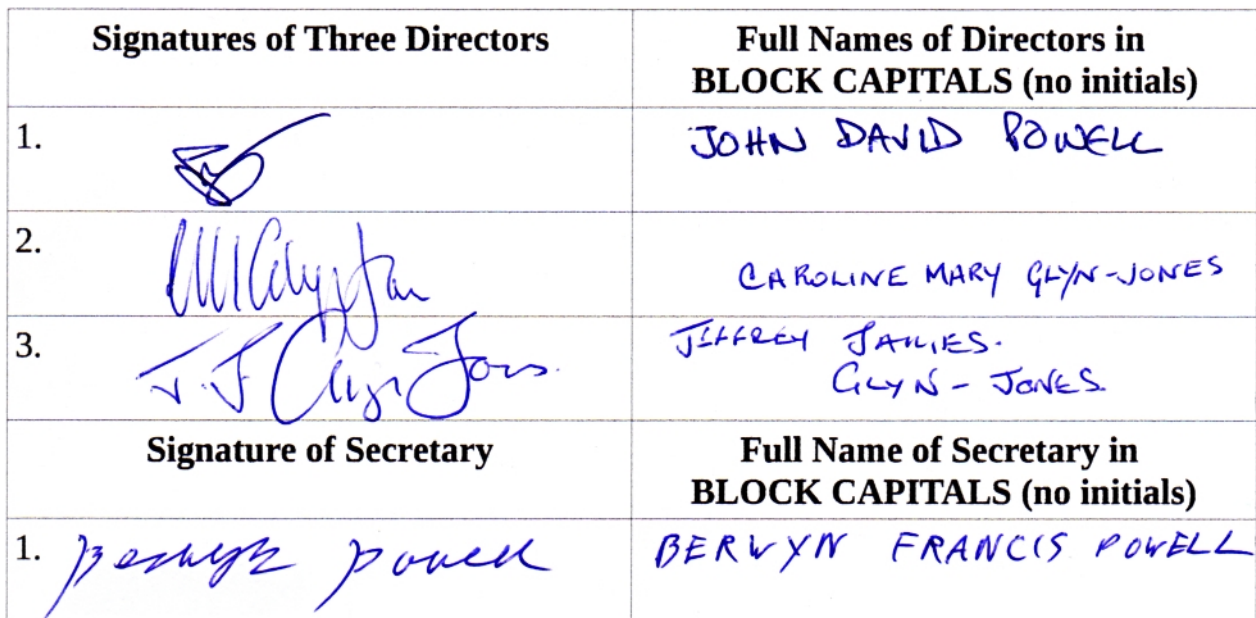 Signatures of Three Directors
Full Names of Directors in
BLOCK CAPITALS (no initials)
1.
JOHN DAVID POWELL
2.
CAROLINE MARY GLYN-JONES
3.
J. J Glyn Jones.
JEFFREY JAMES.
GLYN - JONES.
Signature of Secretary
Full Name of Secretary in
BLOCK CAPITALS (no initials)
1. Berwyn Powell
BERWYN FRANCIS POWELL